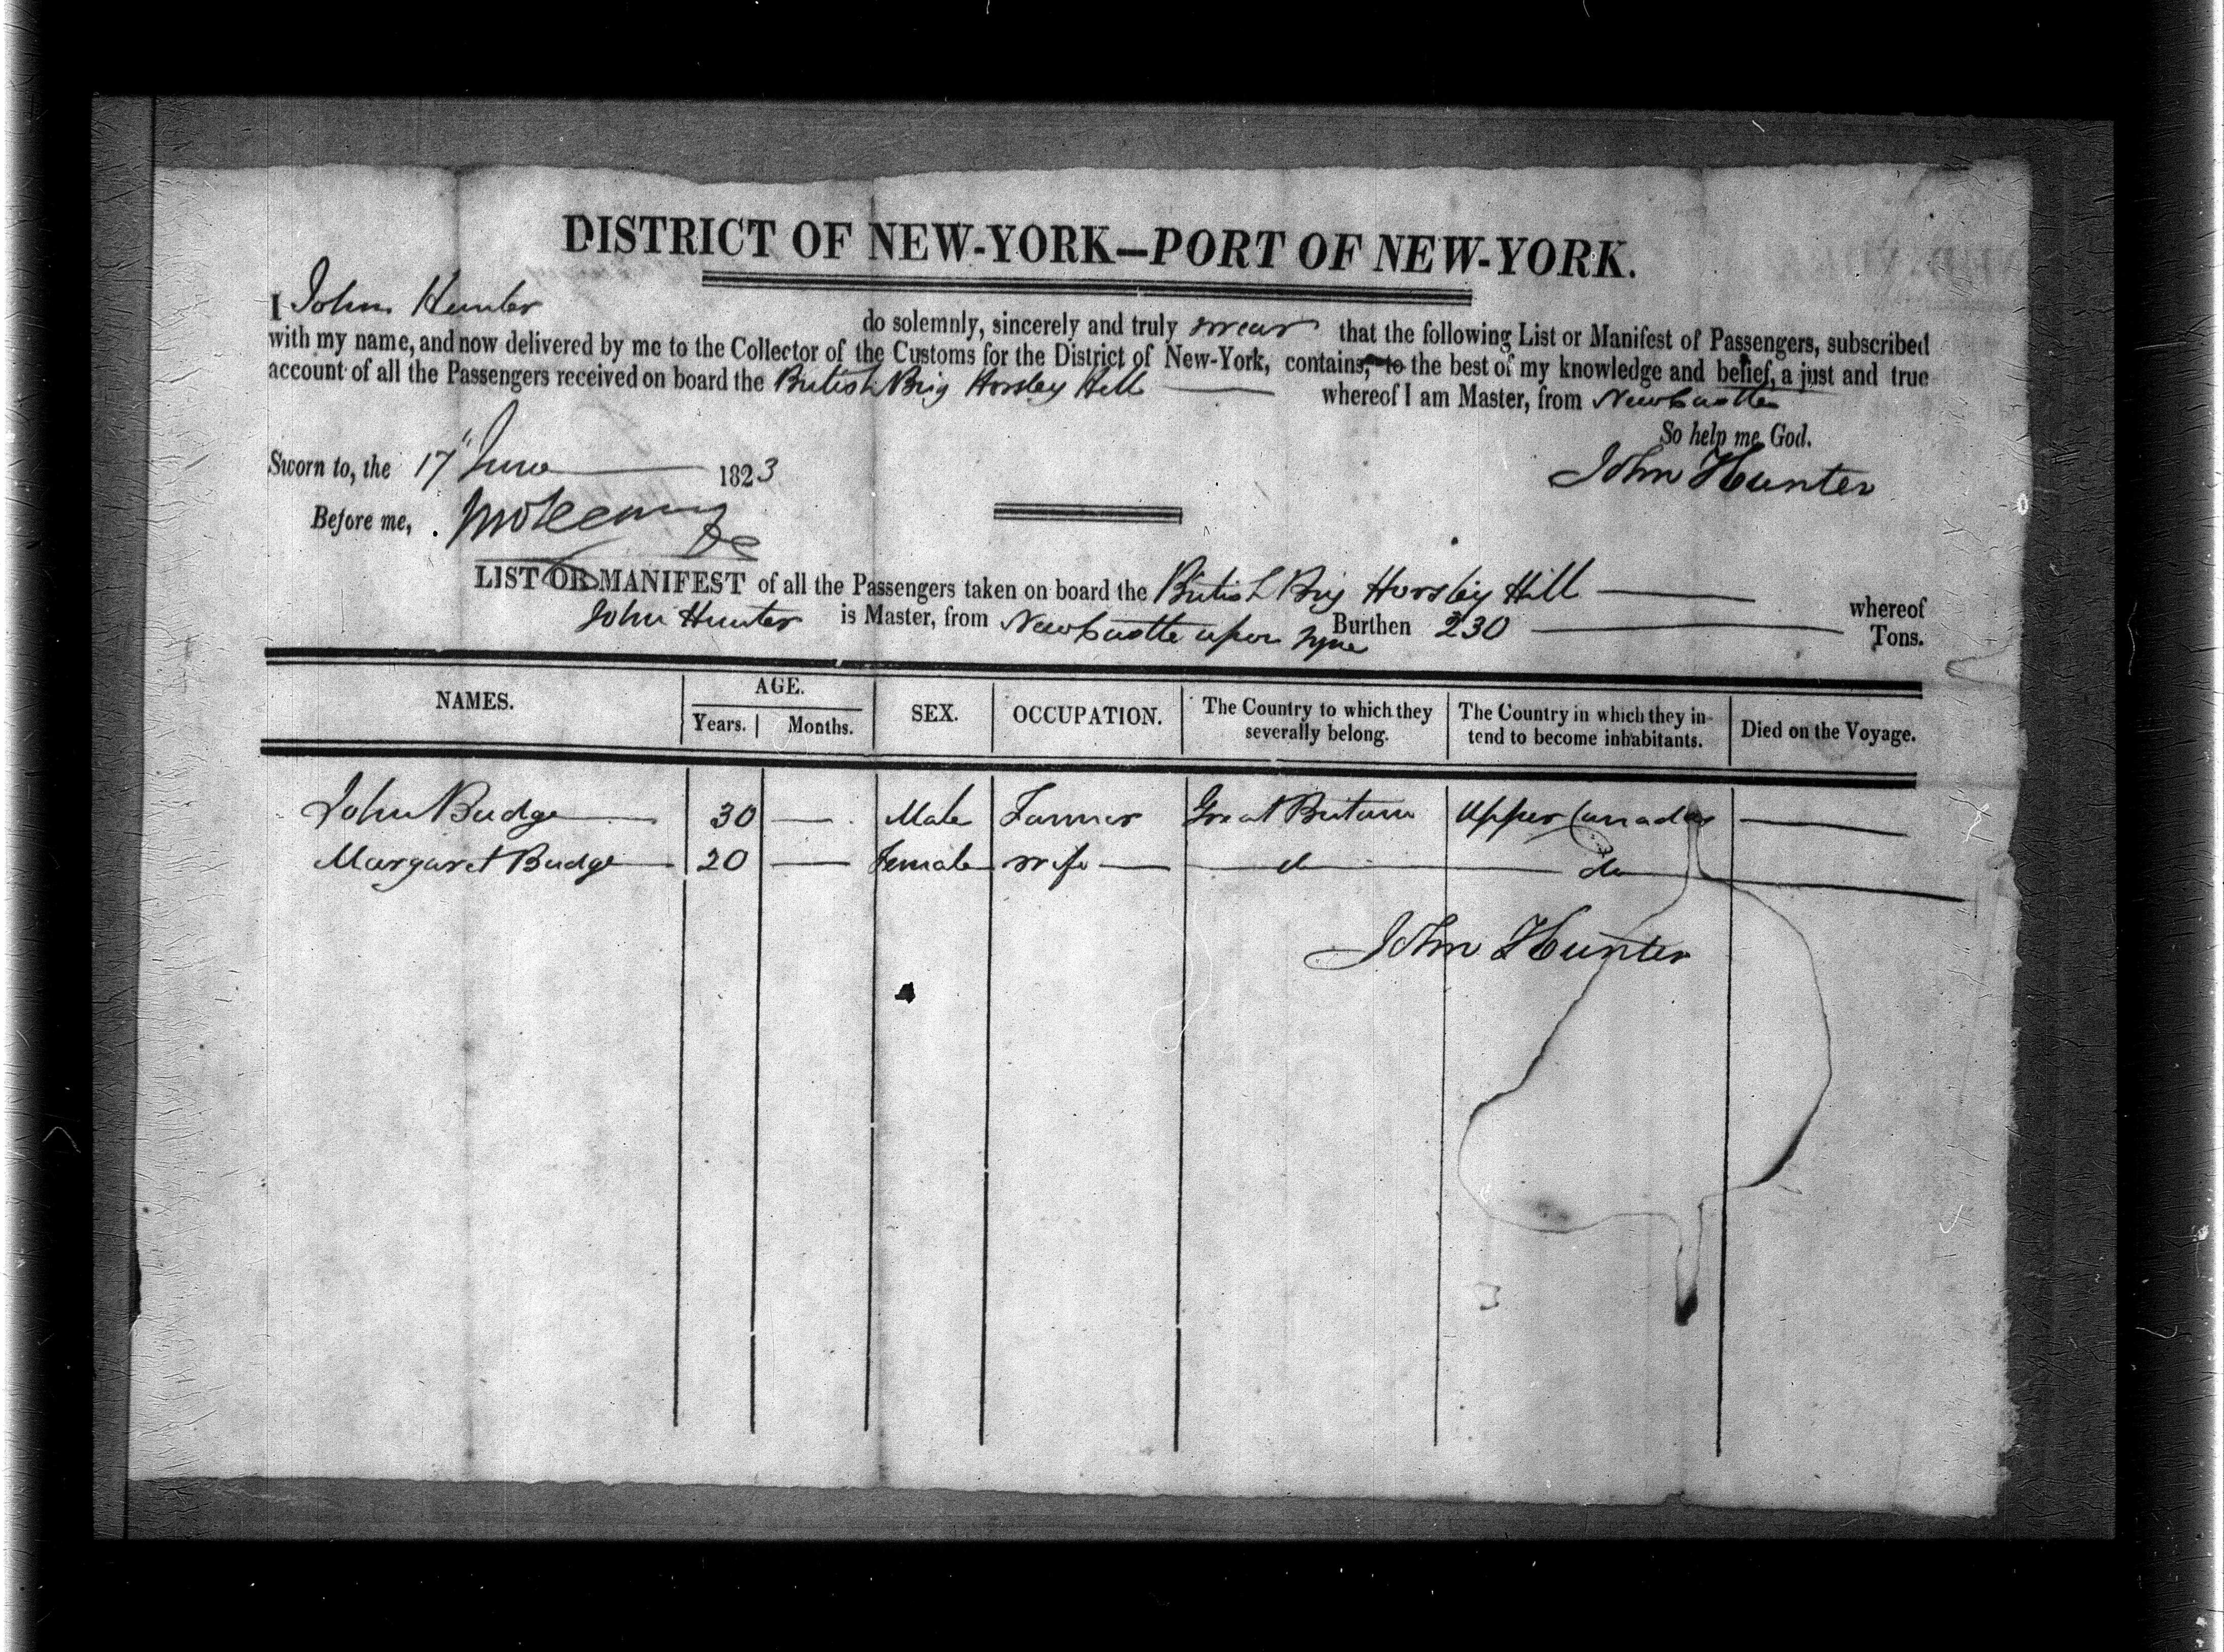 DISTRICT OF NEW-YORK—PORT OF NEW-YORK.
I John Hunter do solemnly, sincerely and truly swear that the following List or Manifest of Passengers, subscribed
with my name, and now delivered by me to the Collector of the Customs for the District of New-York, contains, to the best of my knowledge and belief, a just and true
account of all the Passengers received on board the British Brig Horsley Hill whereof I am Master, from Newcastle
So help me God.
Sworn to, the 17" June 1823
John Hunter
Before me,
LIST OR MANIFEST of all the Passengers taken on board the British Brig Horsley Hill whereof
John Hunter is Master, from Newcastle upon Tyne Burthen 230 Tons.
NAMES. AGE. SEX. OCCUPATION. The Country to which they severally belong. The Country in which they in-tend to become inhabitants. Died on the Voyage.
Years. Months.
John Budge 30 — Male Farmer Great Britain Upper Canada —
Margaret Budge 20 — Female wife do do
John Hunter